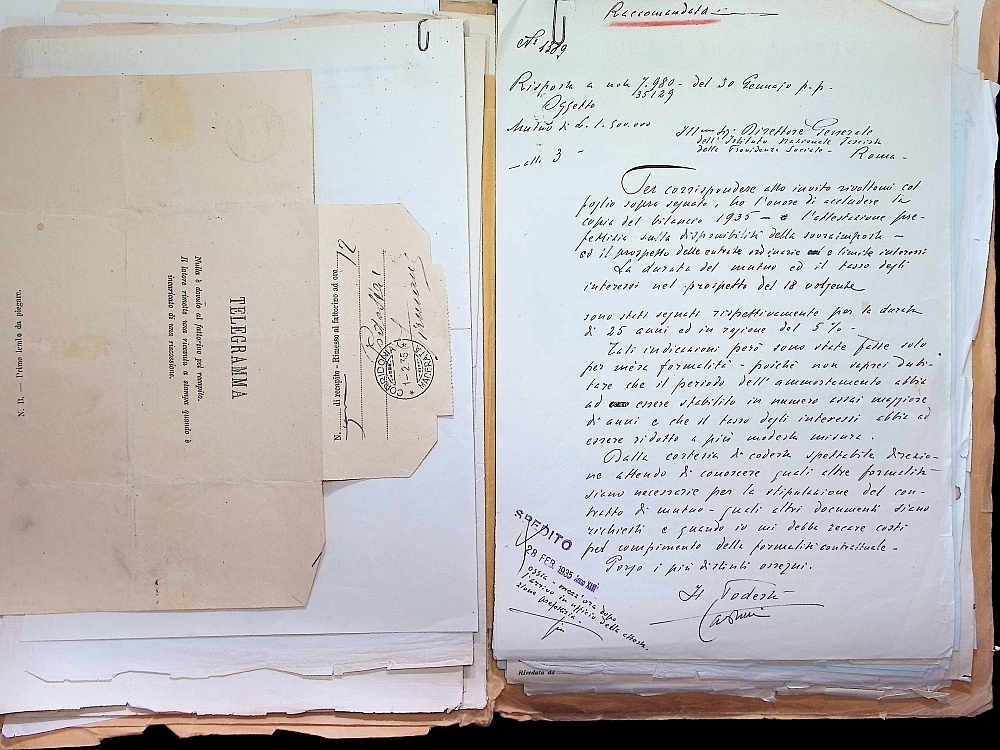 N. B. — Prima lembo da piegare.
TELEGRAMMA
Nulla è dovuto al fattorino pel recapito.
Il latore rimette una ricevuta a stampa quando è
incaricato di una riscossione.
N. 5 di recapito - Rimesso al fattorino ad ore 12
Podestà
CORRIDONIA
1-2.35
MACERATA
Raccomandata
N° 1389
Risposta a nota 7.980 - del 30 Gennajo p.p.
35129
Oggetto
Mutuo di L. 1.500.000
alle 3 -
Ill.mo Sig. Direttore Generale
dell'Istituto Nazionale Fascista
della Previdenza Sociale -
Roma -
Per corrispondere allo invito rivoltomi col
foglio sopra segnato, ho l'onore di accludere la
copia del bilancio 1935 - l'attestazione pre-
fettizia sulla disponibilità della sovraimposta -
ed il prospetto delle entrate ordinarie e limite interessi
La durata del mutuo ed il tasso degli
interessi nel prospetto del 18 volgente
sono stati segnati rispettivamente per la durata
di 25 anni ed in ragione del 5% -
Tali indicazioni però sono state fatte solo
per mera formalità - poichè non saprei dubi-
tare che il periodo dell'ammortamento abbia
ad essere stabilito in numero assai maggiore
di anni e che il tasso degli interessi abbia ad
essere ridotto a più modesta misura.
Dalla cortesia di codesta spettabile direzio-
ne attendo di conoscere quali altre formalità
siano necessarie per la stipulazione del con-
tratto di mutuo - quali altri documenti siano
richiesti e quando io mi debba recare costì
pel compimento della formalità contrattuale -
Porgo i più distinti ossequi.
Il Podestà
SPEDITO
28 FEB. 1935 Anno XIII
ossia - mezz'ora dopo
l'arrivo in ufficio della attesta-
zione prefettizia -
Riveduta da